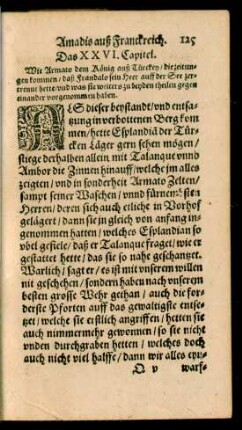 Amadis auß Franckreich. 125
Das XXVI. Capitel.
Wie Armato dem König auß Türckey, die zeitun-
gen kommen / daß Frandalo sein Heer auff der See zer-
trennt hette / vnd was sie weiters zu beyden theilen gegen
einander vorgenommen haben.
ALS dieser beystandt / vnd entsa-
tzung in verbottenen Berg kom
men / hette Esplandiā der Tür-
cken Läger gern sehen mögen /
stiege derhalben allein mit Talanque vnnd
Ambor die Zinnen hinauff / welche jm alles
zeigten / vnd in sonderheit Armato Zelten /
sampt seiner Waschen / vnnd fürnemsten
Herren / deren sich auch etliche in Vorhof
gelägert / dann sie jn gleich von anfang in-
genommen hatten / welches Esplandian so
vbel gefiele / daß er Talanque fraget / wie er
gestattet hette / das sie so nahe geschantzet.
Warlich / sagt er / es ist mit vnserem willen
nit geschehen / sondern haben nach vnserem
besten grosse Wehr gethan / auch die for-
derste Pforten auff das gewaltigste entse-
tzet / welche sie erstlich angriffen / hetten sie
auch nimmermehr gewonnen / so sie nicht
vnden durchgraben hetten / welches doch
auch nicht viel halffe / dann wir alles eyn-
Q v warf-